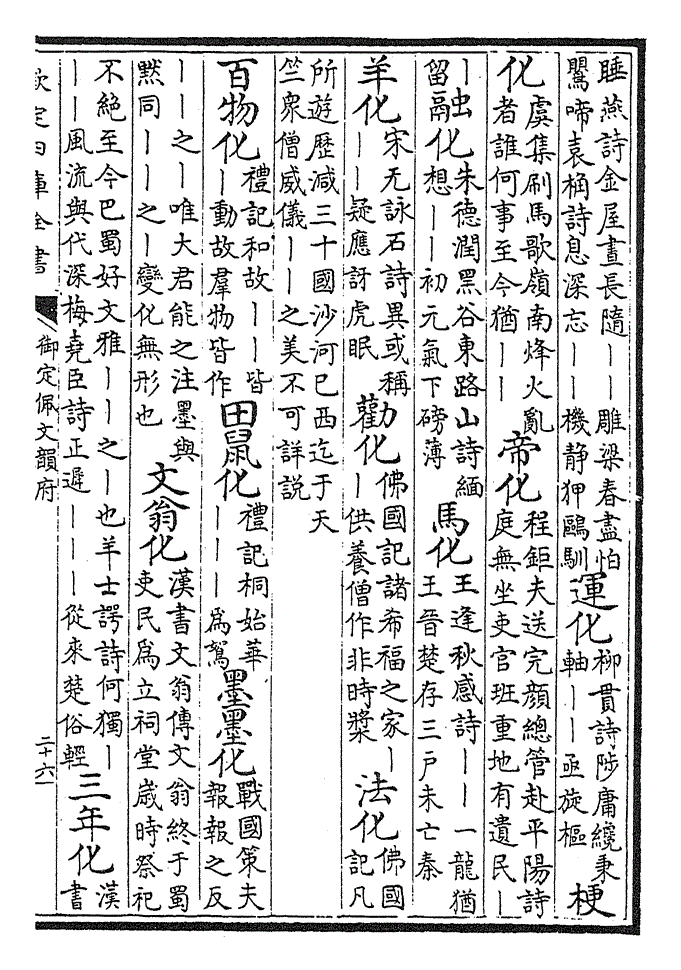 睡燕詩金屋晝長隨——雕梁春盡怕
鸎啼袁桷詩息深忘——機静狎鷗馴
運化
柳貫詩陟庸纔秉
軸——亟旋樞
梗
化
虞集刷馬歌嶺南烽火亂
者誰何事至今猶——
帝化
程鉅夫送完顔總管赴平陽詩
庭無坐吏官班重地有遺民—
—
留
融化
朱德潤黑谷東路山詩緬
想——初元氣下磅薄
馬化
王逢秋感詩——一龍猶
王晉楚存三户未亡秦
羊化
宋无詠石詩異或稱
——疑應訝虎眠
勸化
佛國記諸希福之家—
—供養僧作非時漿
法化
佛國
記凡
所遊歴減三十國沙河已西迄于天
竺衆僧威儀——之美不可詳説
百物化
禮記和故——皆
—動故羣物皆作
田鼠化
禮記桐始華
———爲鴽
墨墨化
戰國策夫
報報之反
——之—唯大君能之注墨與
黙同——之—變化無形也
文翁化
漢書文翁傳文翁終于蜀
吏民爲立祠堂歳時祭祀
不絶至今巴蜀好文雅——之—也羊士諤詩何獨—
——風流與代深梅堯臣詩正遲———從來楚俗輕
三年化
漢
書
欽定四庫全書
御定佩文韻府
二十六